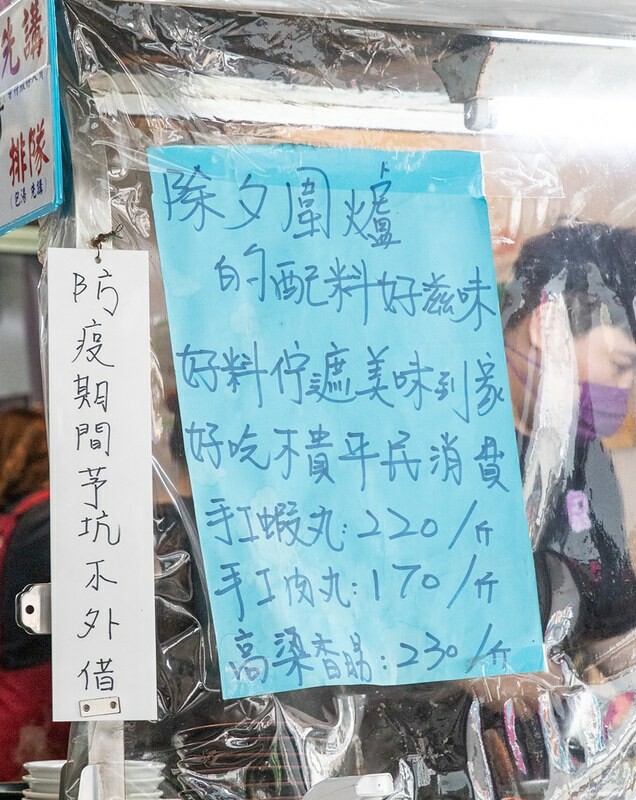 先講
排隊
(包湯 先講)
防疫期間茅坑不外借
除夕圍爐
的配料好滋味
好料佇遮美味到家
好吃不貴平民消費
手工蝦丸:220/斤
手工肉丸:170/斤
高梁香腸:230/斤